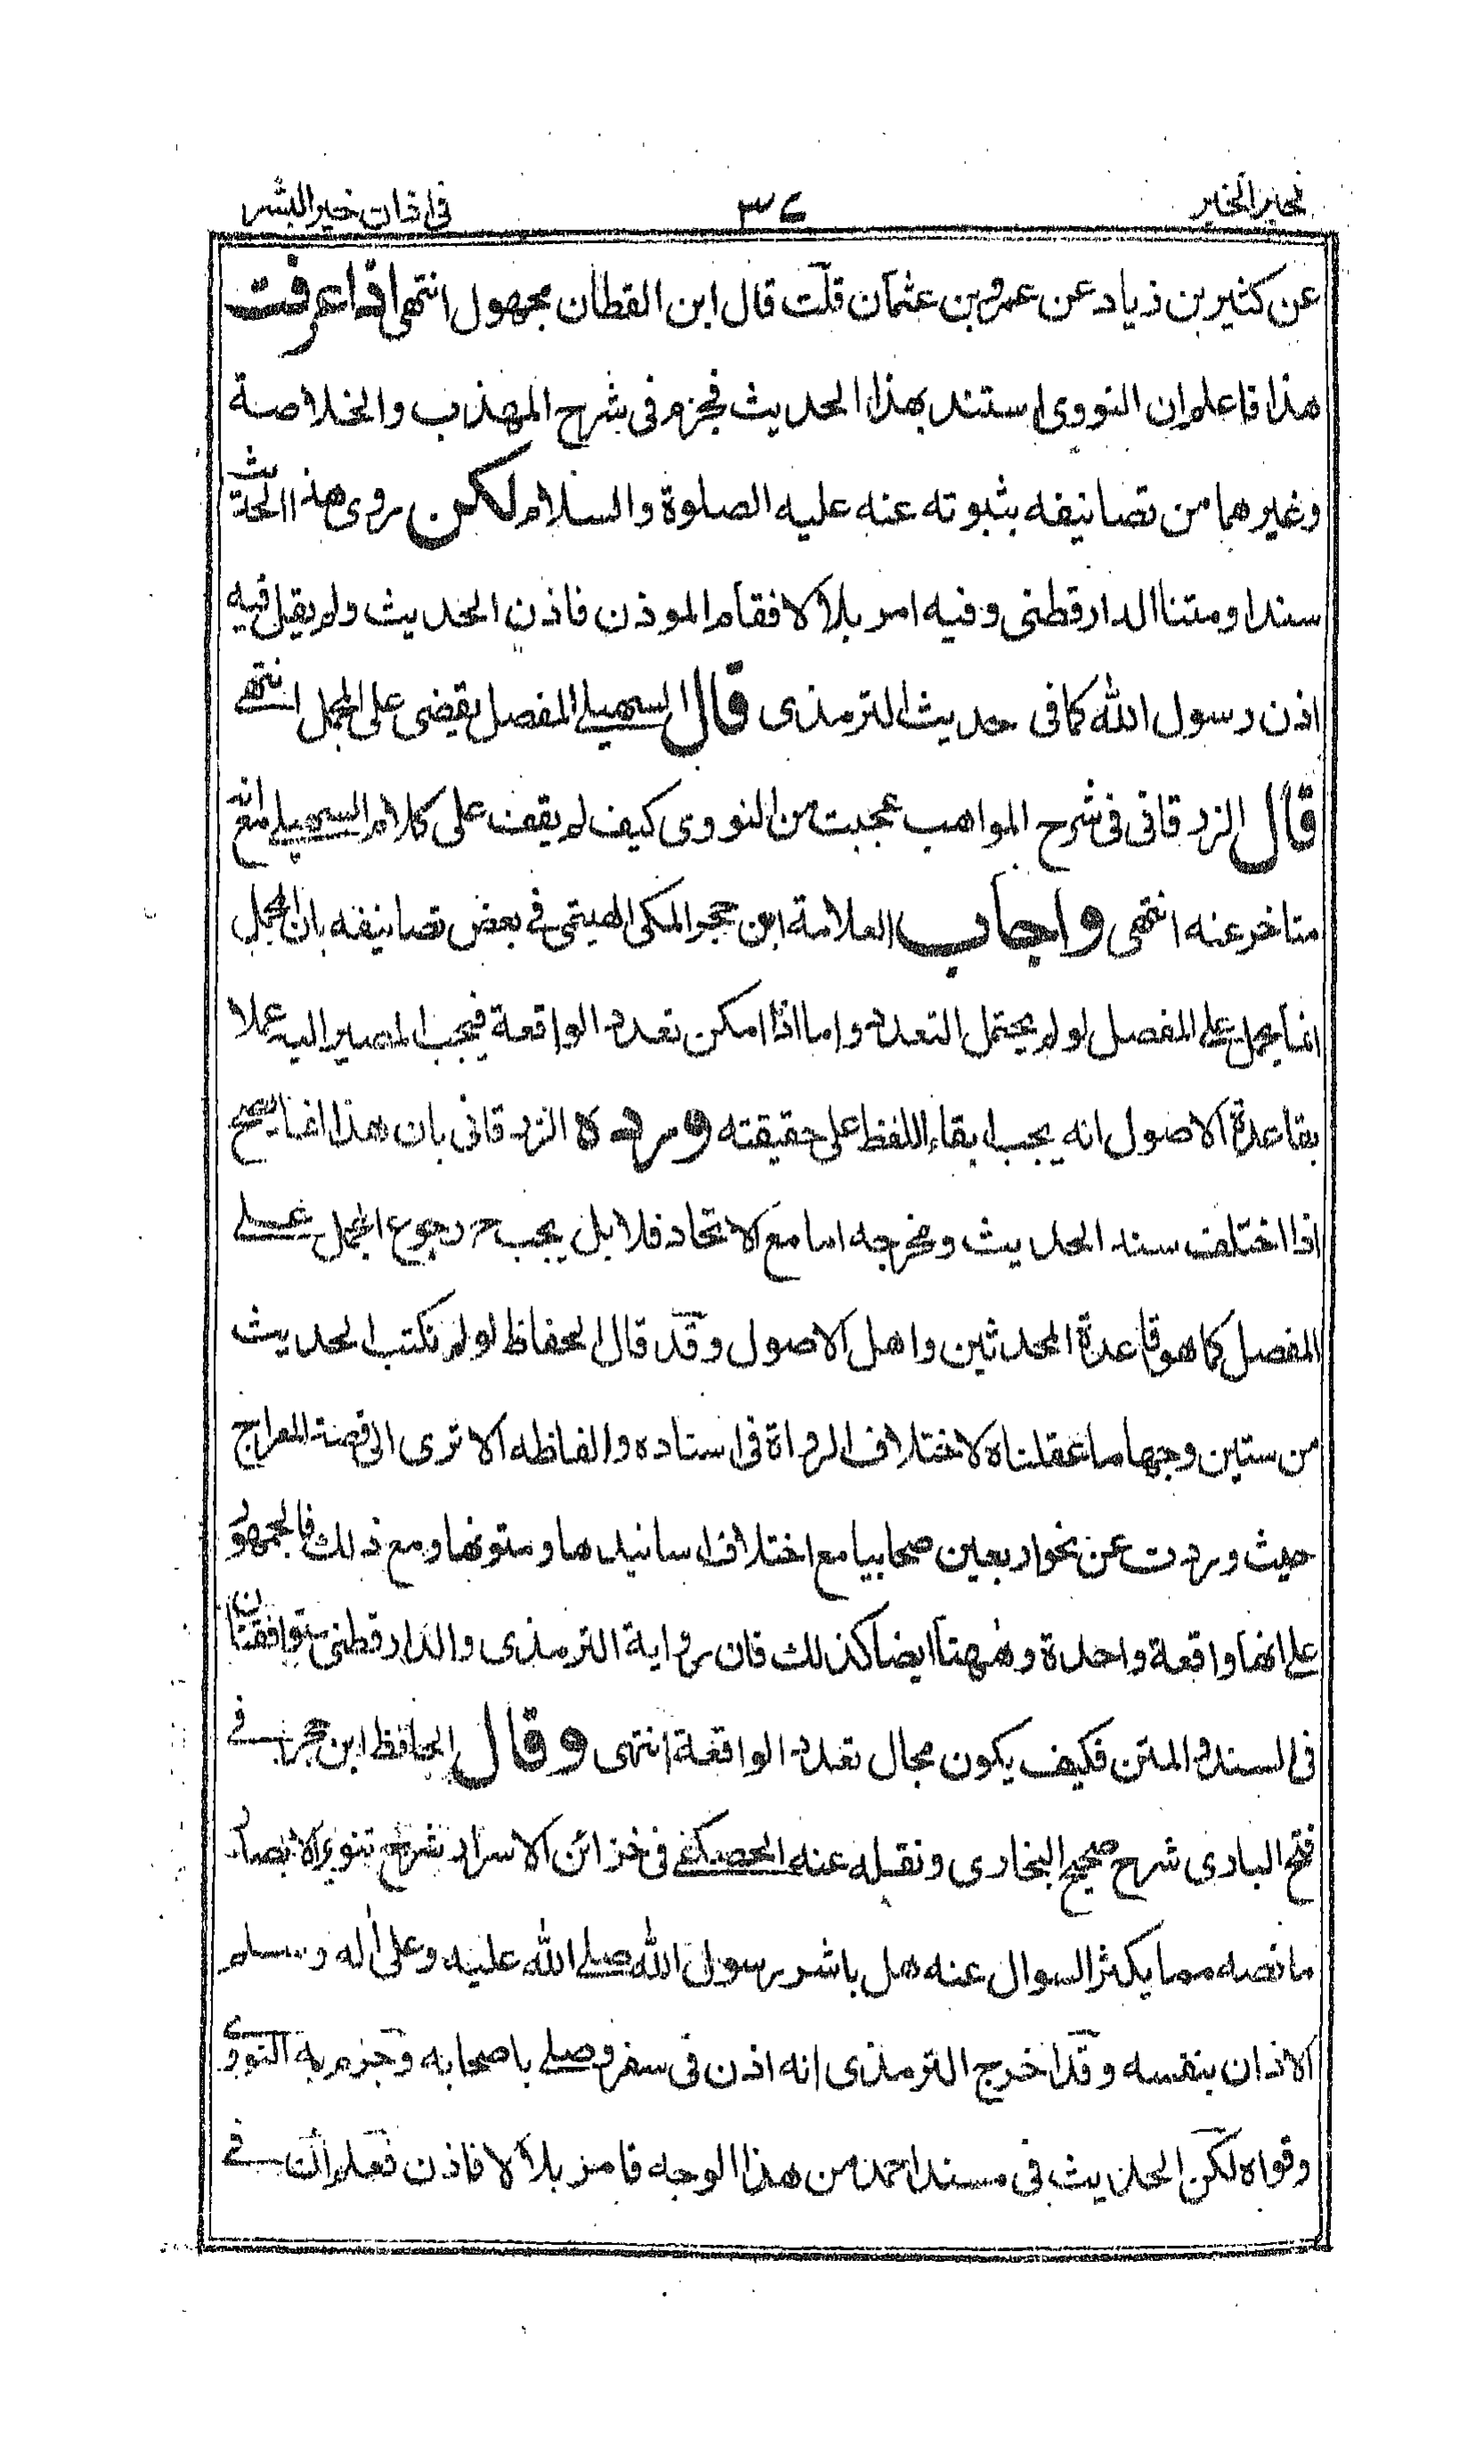 خير الخبر ٣٤ في اذان خير البشر
عن كثير بن زياد عن عمرو بن عثمان قلت قال ابن القطان مجهول انتهى اذا عرفت
هذا فاعلم ان النووي استند بهذا الحديث فجزم في شرح المهذب والخلاصة
وغيرهما من تصانيفه بثبوته عنه عليه الصلوة والسلام لكن روى هذا الحديث
سندا ومتنا الدارقطني وفيه امر بلالا فقام الموذن فاذن الحديث ولم يقل فيه
اذن رسول الله كما في حديث الترمذي قال السهيلي المفصل يقضى على المجمل انتهى
قال الزرقاني في شرح المواهب عجبت من النووي كيف لم يقف على كلام السهيلي مع انه
متاخر عنه انتهى واجاب العلامة ابن حجر المكي الهيتمي في بعض تصانيفه بان المجمل
انما يحمل على المفصل لو لم يحتمل التعدد واما اذا امكن تعدد الواقعة فيجب المصير اليه عملا
بقاعدة الاصول انه يجب ابقاء اللفظ على حقيقته ورده الزرقاني بان هذا انما يصح
اذا اختلف سند الحديث ومخرجه اما مع الاتحاد فلا بل يجب ح رجوع المجمل على
المفصل كما هو قاعدة المحدثين واهل الاصول وقد قال الحفاظ لو لم نكتب الحديث
من ستين وجها ما عقلناه لاختلاف الرواة في اسناده والفاظه الا ترى الى قصة المعراج
حيث وردت عن نحو اربعين صحابيا مع اختلاف اسانيدها ومتونها ومع ذلك فالجمهور
على انها واقعة واحدة وههنا ايضا كذلك فان رواية الترمذي والدارقطني متوافقتان
في السند والمتن فكيف يكون مجال تعدد الواقعة انتهى وقال الحافظ ابن حجر في
فتح الباري شرح صحيح البخاري ونقله عنه الحصكفي في خزائن الاسرار شرح تنوير الابصار
ما نصه مما يكثر السوال عنه هل باشر رسول الله صلى الله عليه وعلى اله وسلم
الاذان بنفسه وقد اخرج الترمذي انه اذن في سفر وصلى باصحابه وجزم به النووي
وقواه لكن الحديث في مسند احمد من هذا الوجه فامر بلالا فاذن فعلم ان في